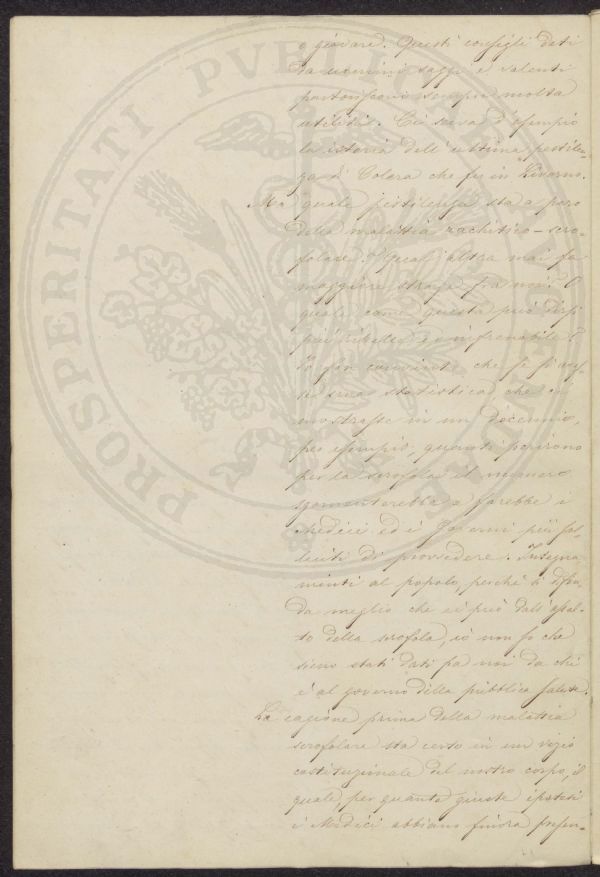 o giovare. Questi consigli dati
da uomini saggi e valenti
partoriscono sempre molta
utilità. Ci serva d'esempio
la istoria dell'ultima pestilen-
za di Colera che fu in Livorno.
Ma quale pestilenza sta a paro
della malattia rachitico-scro-
folare? Qual'altra mai fa
maggiore strage fra noi? O
quale come questa può dirsi
più ribelle ed infrenabile?
Io son convinto che se si
una statistica che ci
mostrasse in un decennio,
per esempio, quanti perirono
per la scrofola il numero
sgomenterebbe e farebbe i
Medici ed i Governi più sol-
leciti di provvedere. Insegna-
menti al popolo, perchè si difen-
da meglio che si può dall'assal-
to della scrofola, io non so che
sieno stati dati fra noi da chi
è al governo della pubblica salute.
La cagione prima della malattia
scrofolare sta certo in un vizio
costituzionale del nostro corpo, il
quale, per quante giuste ipotesi
i Medici abbiano finora presen-
PROSPERITATI PVBLICAE AVGENDAE